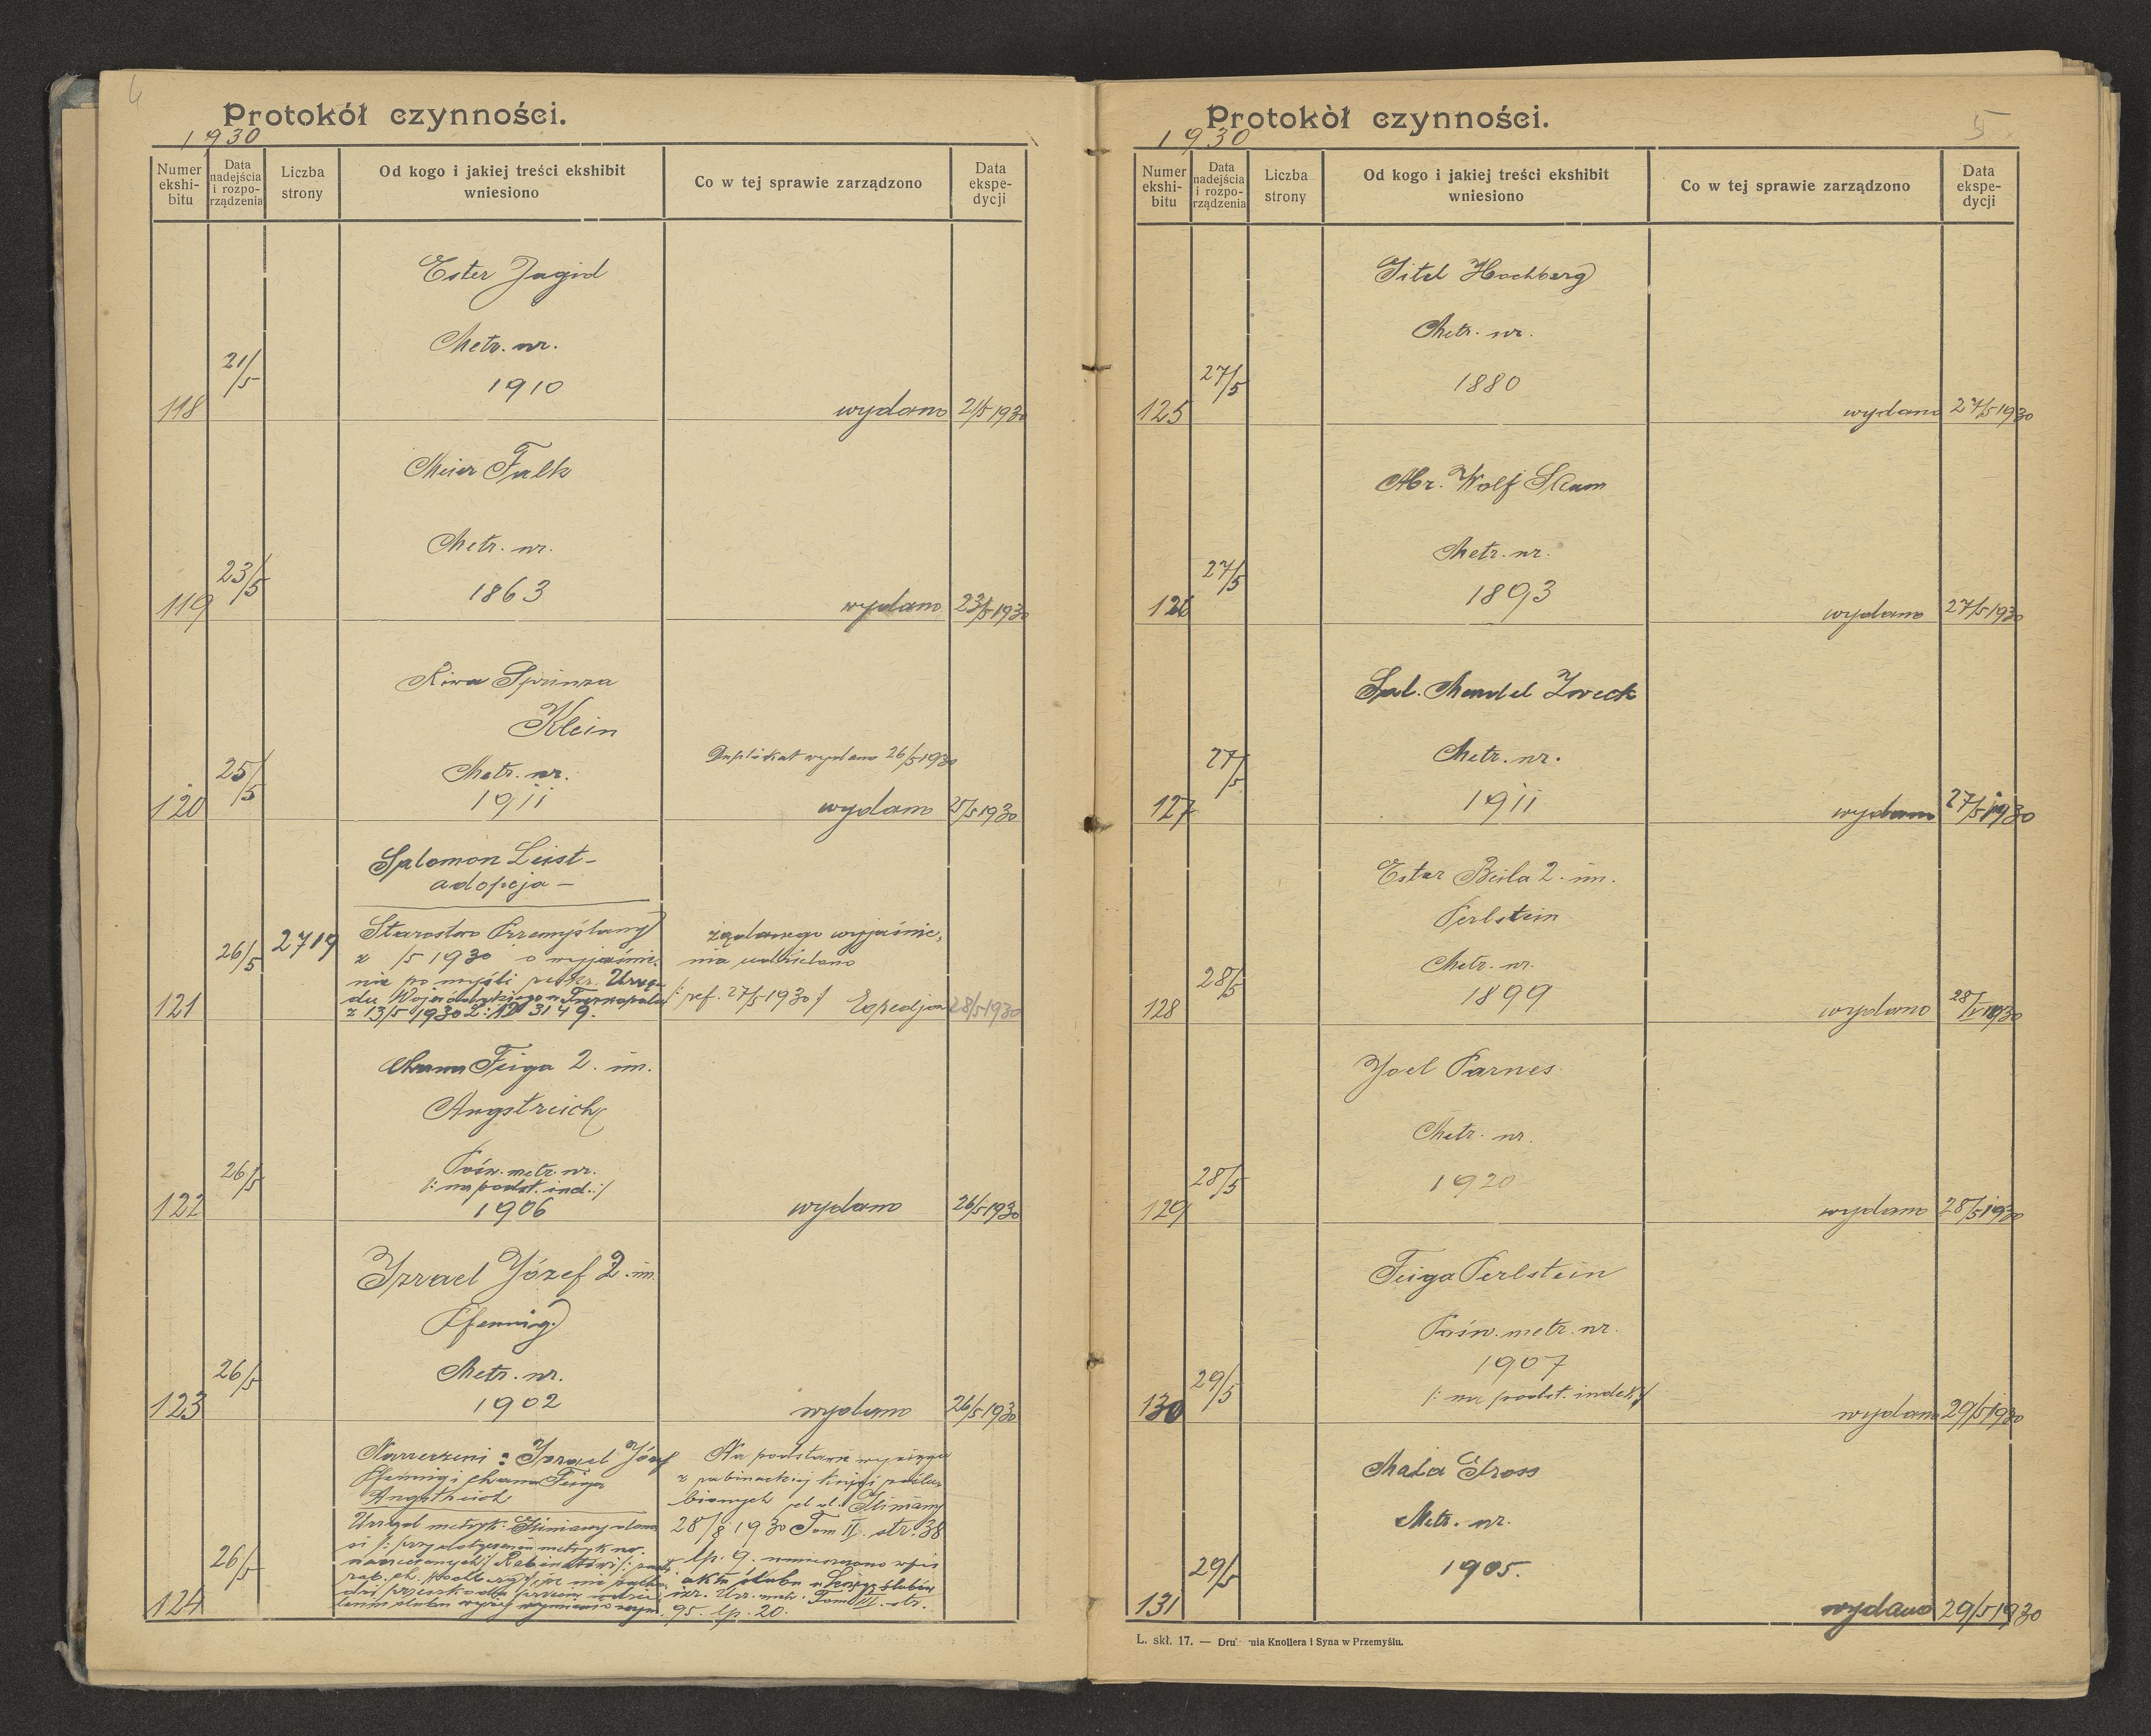 4
Protokół czynności.
1930
Numer ekshi-bitu
Data nadejścia i rozpo-rządzenia
Liczba strony
Od kogo i jakiej treści ekshibit wniesiono
Co w tej sprawie zarządzono
Data ekspe-dycji
Ester Jagid
Metr. nr.
21/5
1910
118
wydano 21/5 1930
Meier Falk
Metr. nr.
23/5
1863
119
wydano 23/5 1930
Sprinza
Klein
Duplikat wydano 26/5 1930
25/5
Metr. nr.
1911
120
wydano 25/5 1930
Salomon Leist-
adopcja -
26/5
2719
Starostwo Przemyślany
z /5 1930 o wyjaśnie-
nie po myśli reskr. Urzę-
du Wojewódzkiego w Tarnopolu
z 13/5 1930 L: 3149.
żądanego wyjaśnie-
nia udzielono
/: ref. 27/5 1930 :/
121
28/5 1930
Chana Feiga 2. im.
Angstreich
26/5
Pośw. metr. nr.
/: na podst. ind.:/
1906
122
wydano 26/5 1930
Izrael Józef 2. im.
Pfennig
26/5
Metr. nr.
1902
123
wydano 26/5 1930
Narzeczeni: Izrael Józef
Pfennig i Chana Feiga
Angstreich
Urząd metryk. Gliniany
26/5
124
Na podstawie wyciągu
z rabinackiej księgi
Gliniany
28/8 1930 Tom II. str. 38
lp. 9.
aktu ślubu w księgę ślubów
izr. Urz. metr. Tom III. str.
95. lp. 20.
5
Protokół czynności.
1930
Numer ekshi-bitu
Data nadejścia i rozpo-rządzenia
Liczba strony
Od kogo i jakiej treści ekshibit wniesiono
Co w tej sprawie zarządzono
Data ekspe-dycji
Gitel Hochberg
Metr. nr.
27/5
1880
125
wydano 27/5 1930
Abr. Wolf
Metr. nr.
27/5
1893
126
wydano 27/5 1930
Sal. Mendel Zweck
Metr. nr.
27/5
1911
127
wydano 27/5 1930
Ester Beila 2. im.
Perlstein
28/5
Metr. nr.
1899
128
wydano 28/V 1930
Joel Parnes
Metr. nr.
28/5
1920
129
wydano 28/5 1930
Feiga Perlstein
Pośw. metr. nr.
1907
29/5
/: na podst. indeks:/
130
wydano 29/5 1930
Mala Gross
Metr. nr.
29/5
1905.
131
wydano 29/5 1930
L. skł. 17. — Dru nia Knollera i Syna w Przemyślu.